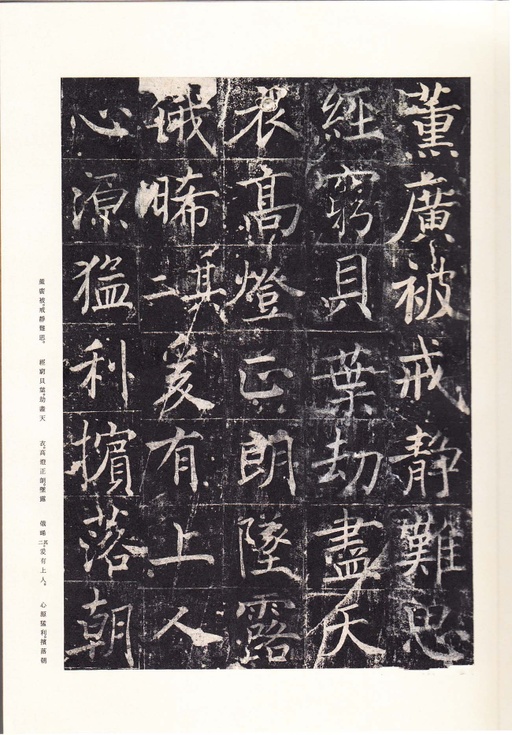 薰廣被戒静難思
經窮貝葉劫盡天
衣高燈正朗墜露
俄晞其二爰有上人
心源猛利擯落朝
薰廣被。戒静難思。
經窮貝葉。劫盡天
衣。高燈正朗。墜露
俄晞。其二爰有上人。
心源猛利。擯落朝